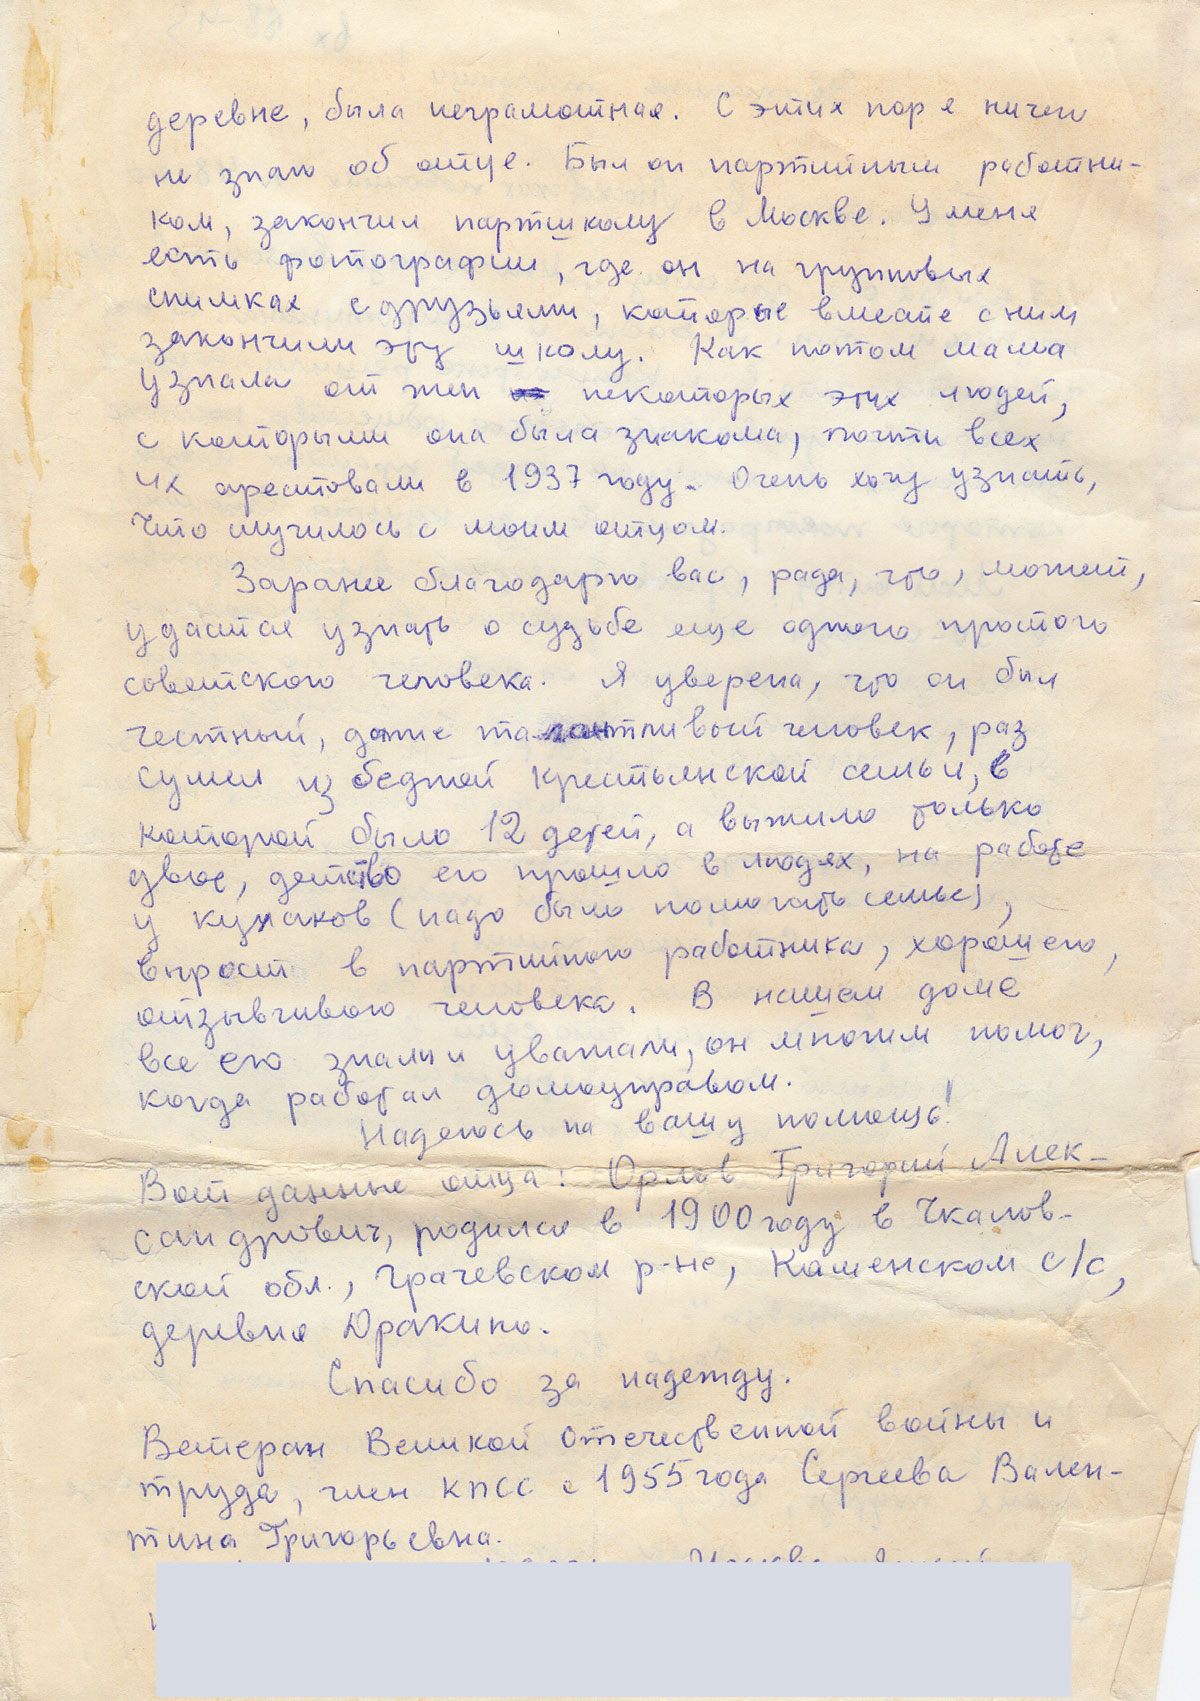 деревне, была неграмотная. С этих пор я ничего
не знаю об отце. Был он партийным работни-
ком, закончил партшколу в Москве. У меня
есть фотографии, где он на групповых
снимках с друзьями, которые вместе с ним
закончили эту школу. Как потом мама
узнала от жен некоторых этих людей,
с которыми она была знакома, почти всех
их арестовали в 1937 году. Очень хочу узнать,
что случилось с моим отцом.
Заранее благодарю вас, рада, что, может,
удастся узнать о судьбе еще одного простого
советского человека. Я уверена, что он был
честный, даже талантливый человек, раз
сумел из бедной крестьянской семьи, в
которой было 12 детей, а выжило только
двое, детство его прошло в людях, на работе
у кулаков (надо было помогать семье),
вырост в партийного работника, хорошего,
отзывчивого человека. В нашем доме
все его знали и уважали, он многим помог,
когда работал домоуправом.
Надеюсь на вашу помощь!
Вот данные отца: Орлов Григорий Алек-
сандрович, родился в 1900 году в Чкалов-
ской обл., Грачевском р-не, Каменском с/с,
деревня Дракино.
Спасибо за надежду.
Ветеран Великой Отечественной войны и
труда, член КПСС с 1955 года Сергеева Вален-
тина Григорьевна.